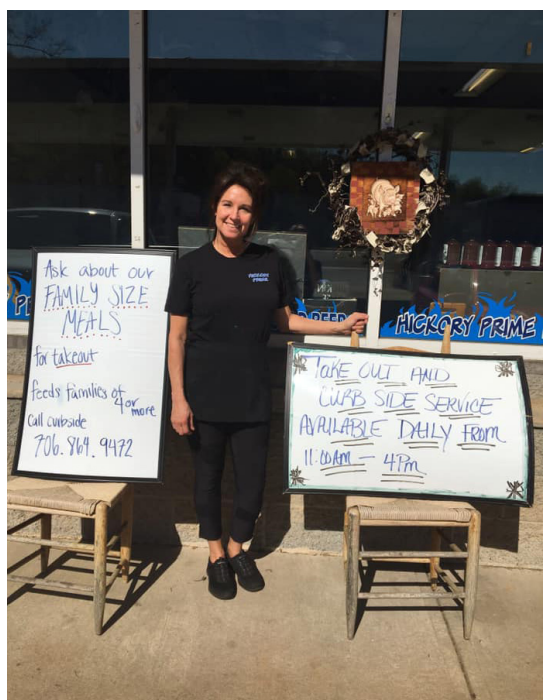 Ask about our
FAMILY SIZE
MEALS
for takeout
feeds families of
4 or more
Call curbside
706.864.9472
HICKORY
PRIME
HICKORY PRIME
TAKE OUT AND
CURB SIDE SERVICE
AVAILABLE DAILY FROM
11:00AM - 4PM